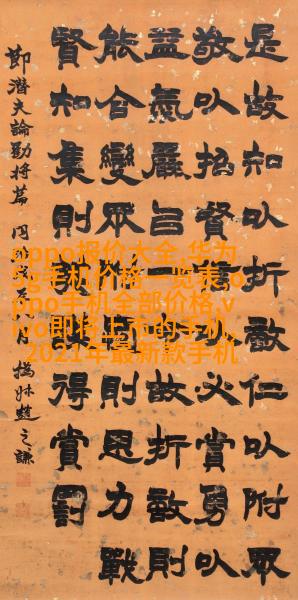 是故知以折敵仁以附眾
敬以招賢必賞勇以
益氣嚴㠯一故折敵則
能合變眾則思力戰
賢知集則得賞罰
節潛夫論勸將篇 同月 撝叔趙之謙
oppo报价大全,华为
5g手机价格一览表,o
ppo手机全部价格,v
ivo即将上市的手机,
2021年最新款手机